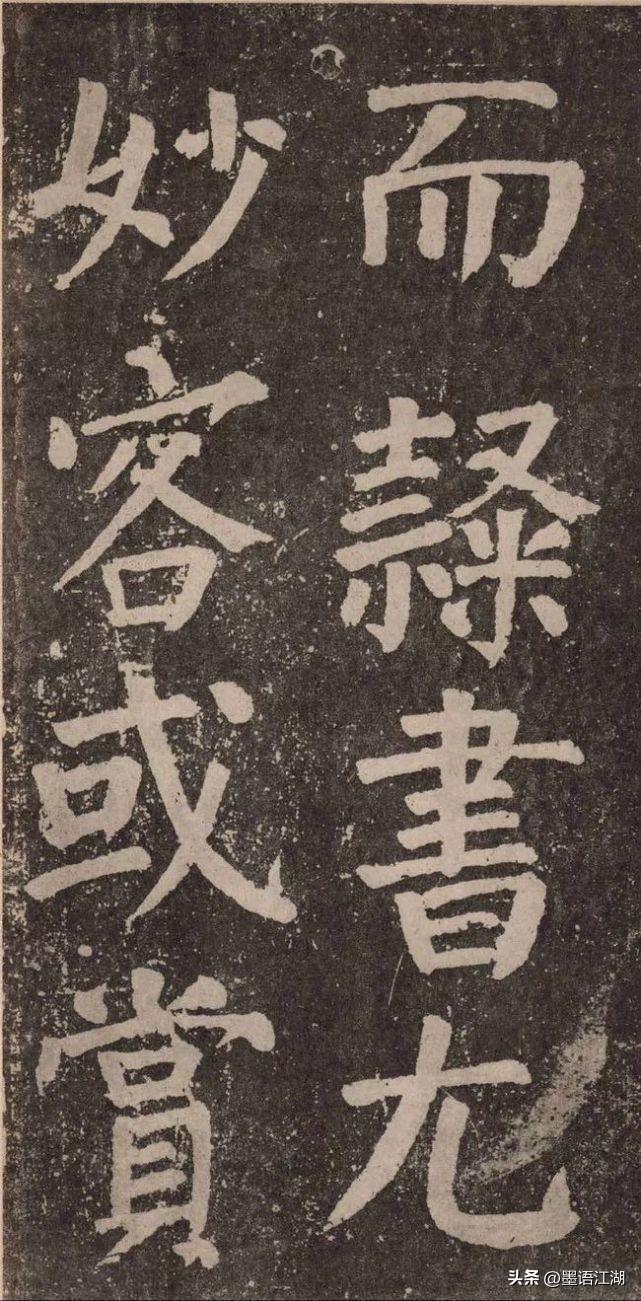 而隸書尤
妙客或賞
头条 @墨语江湖